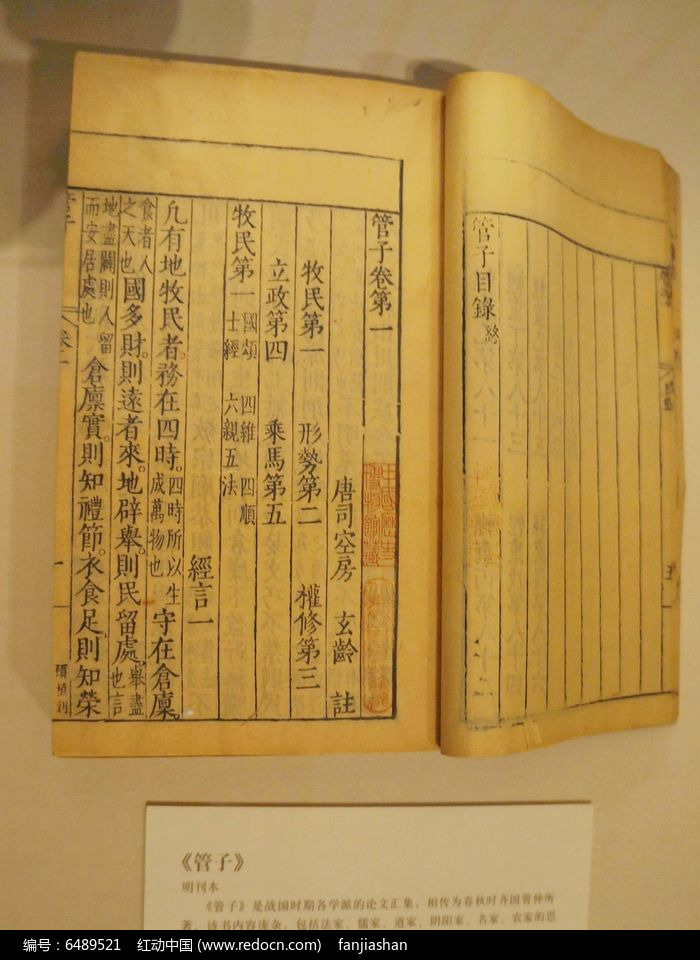 管子目錄終
管子卷第一
唐司空房　玄齡　註
牧民第一　形勢第二　權修第三
立政第四　乘馬第五
牧民第一　國頌　四維　四順
士經　六親五法
經言一
凢有地牧民者。務在四時。四時所以生
成萬物也
守在倉廩。
食者人
之天也
國多財。則遠者來。地辟舉。則民留處。舉盡
也言
地盡闢則人留
而安居處也
倉廩實。則知禮節。衣食足。則知榮
管子
卷一
《管子》
明刊本
《管子》是战国时期各学派的论文汇集，相传为春秋时齐国管仲所
著。该书内容庞杂，包括法家、儒家、道家、阴阳家、名家、农家的思
编号：6489521　红动中国 (www.redocn.com)　fanjiashan